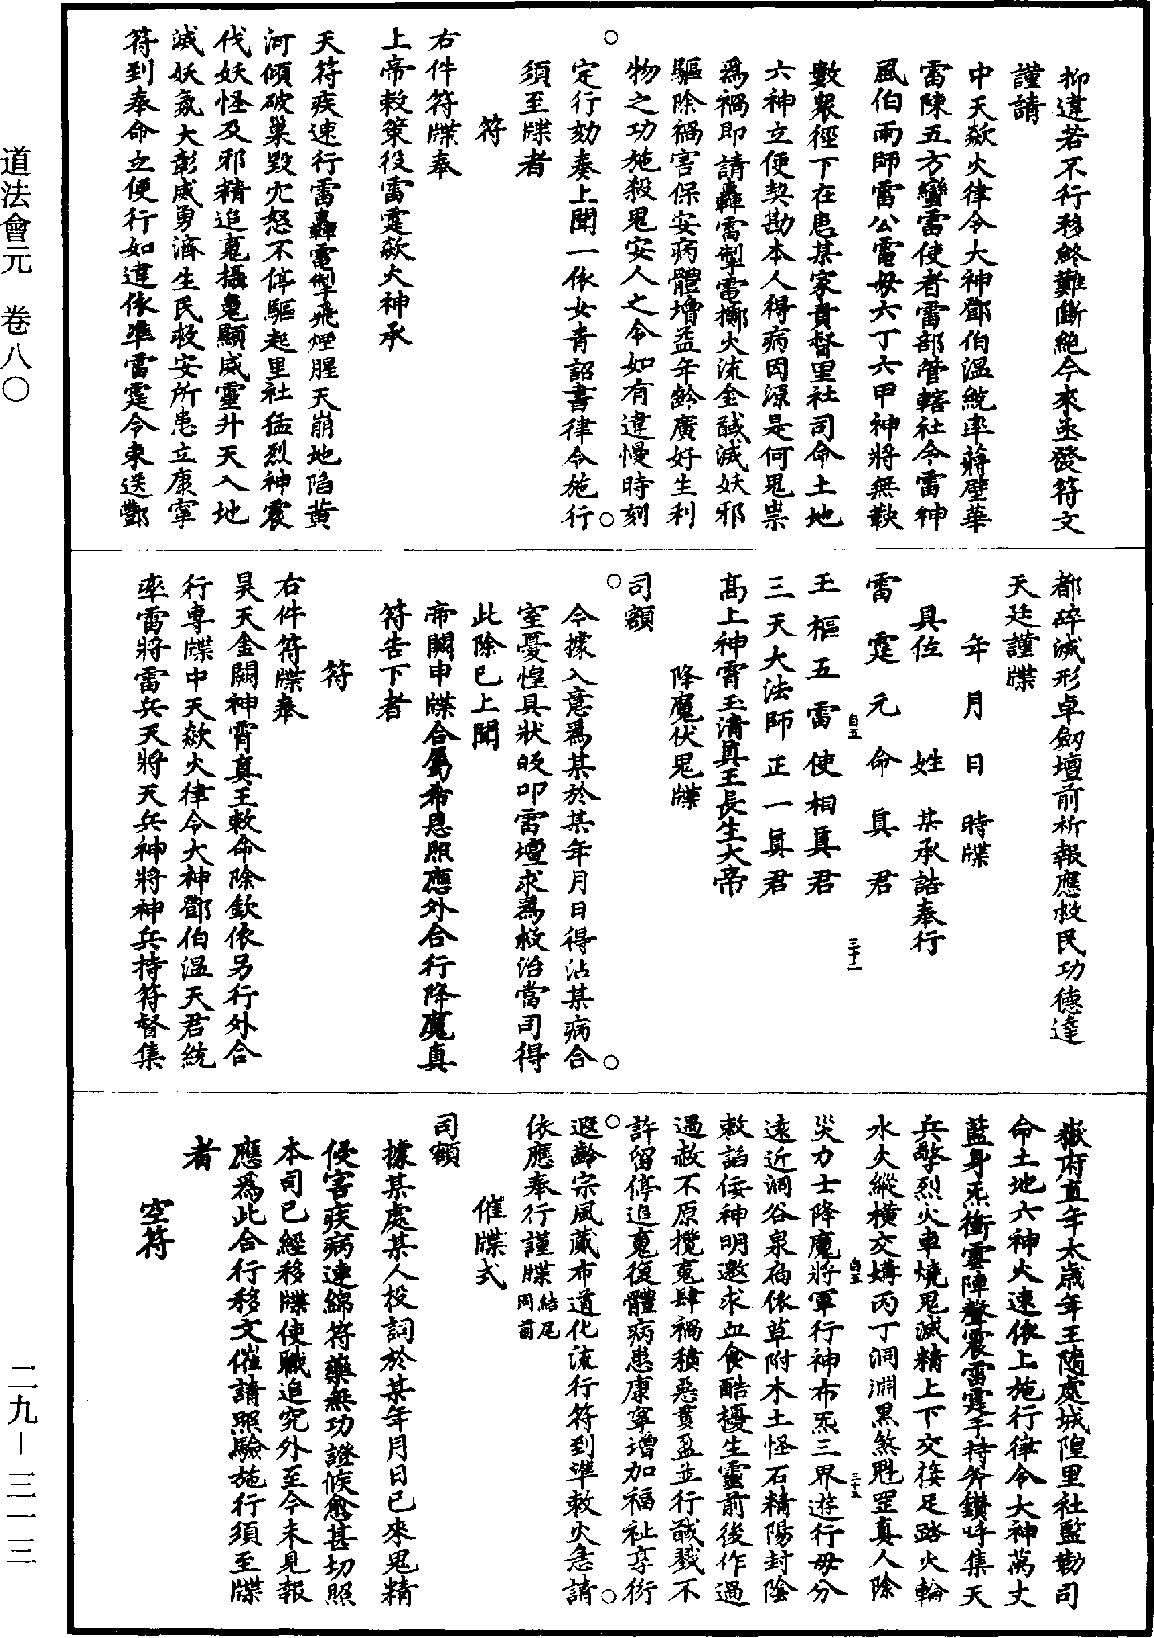 抑違若不行移終難斷絕今來亟發符文
謹請
中天歘火律令大神鄧伯溫統率蔣壁華
雷陳五方蠻雷使者雷部管轄社令雷神
風伯雨師雷公電母六丁六甲神將無鞅
數衆徑下在患某家責督里社司命土地
六神立便契勘本人得病因源是何鬼祟
爲禍即請轟雷掣電擲火流金馘滅妖邪
驅除禍害保安病體增益年齡廣好生利
物之功施殺鬼安人之令如有違慢時刻
定行劾奏上聞一依女青詔書律令施行
須至牒者
符
右件符牒奉
上帝敕策役雷霆歘火神承
天符疾速行雷轟電掣飛煙腥天崩地陷黃
河傾破巢毀穴怒不停驅起里社猛烈神震
伐妖怪及邪精追䰟攝䰟顯威靈升天入地
滅妖氛大彰威勇濟生民救安所患立康寧
符到奉命立便行如違依準雷霆令束送酆
都碎滅形卓劒壇前祈報應救民功德達
天廷謹牒
年 月 日 時牒
具位 姓 某承誥奉行
雷霆元命真君
王樞五雷使相真君
三天大法師正一真君
高上神霄玉清真王長生大帝
降魔伏鬼牒
司額
今據入意爲某於某年月日得沾某病合
室憂惶具狀皈叩雷壇求爲救治當司得
此除已上聞
帝闕申牒合屬希恩照應外合行降魔真
符告下者
符
右件符牒奉
昊天金闕神霄真王敕命除欽依另行外合
行專牒中天歘火律令大神鄧伯溫天君統
率雷將雷兵天將天兵神將神兵持符督集
嶽府直年太歲年王隨處城隍里社監勘司
命土地六神火速依上施行律令大神萬丈
藍身炁衝雲陣聲震雷霆手持斧鑽呼集天
兵擎烈火車燒鬼滅精上下交接足踏火輪
水火縱橫交媾丙丁洞淵黑煞魁罡真人除
災力士降魔將軍行神布炁三界遊行毋分
遠近洞谷泉扃依草附木土怪石精陽封陰
敕謟佞神明邀求血食酷擾生靈前後作過
過赦不原攬䰟肆禍積惡貫盈並行馘戮不
許留停追䰟復體病患康寧增加福祉享衍
遐齡宗風藏布道化流行符到準敕火急請
依應奉行謹牒結尾同前
催牒式
司額
據某處某人投詞於某年月日已來鬼精
侵害疾病連綿符藥無功證候愈甚切照
本司已經移牒使職追究外至今未見報
應爲此合行移文催請照驗施行須至牒
者
空符
道法會元 卷八〇
二九－三一三